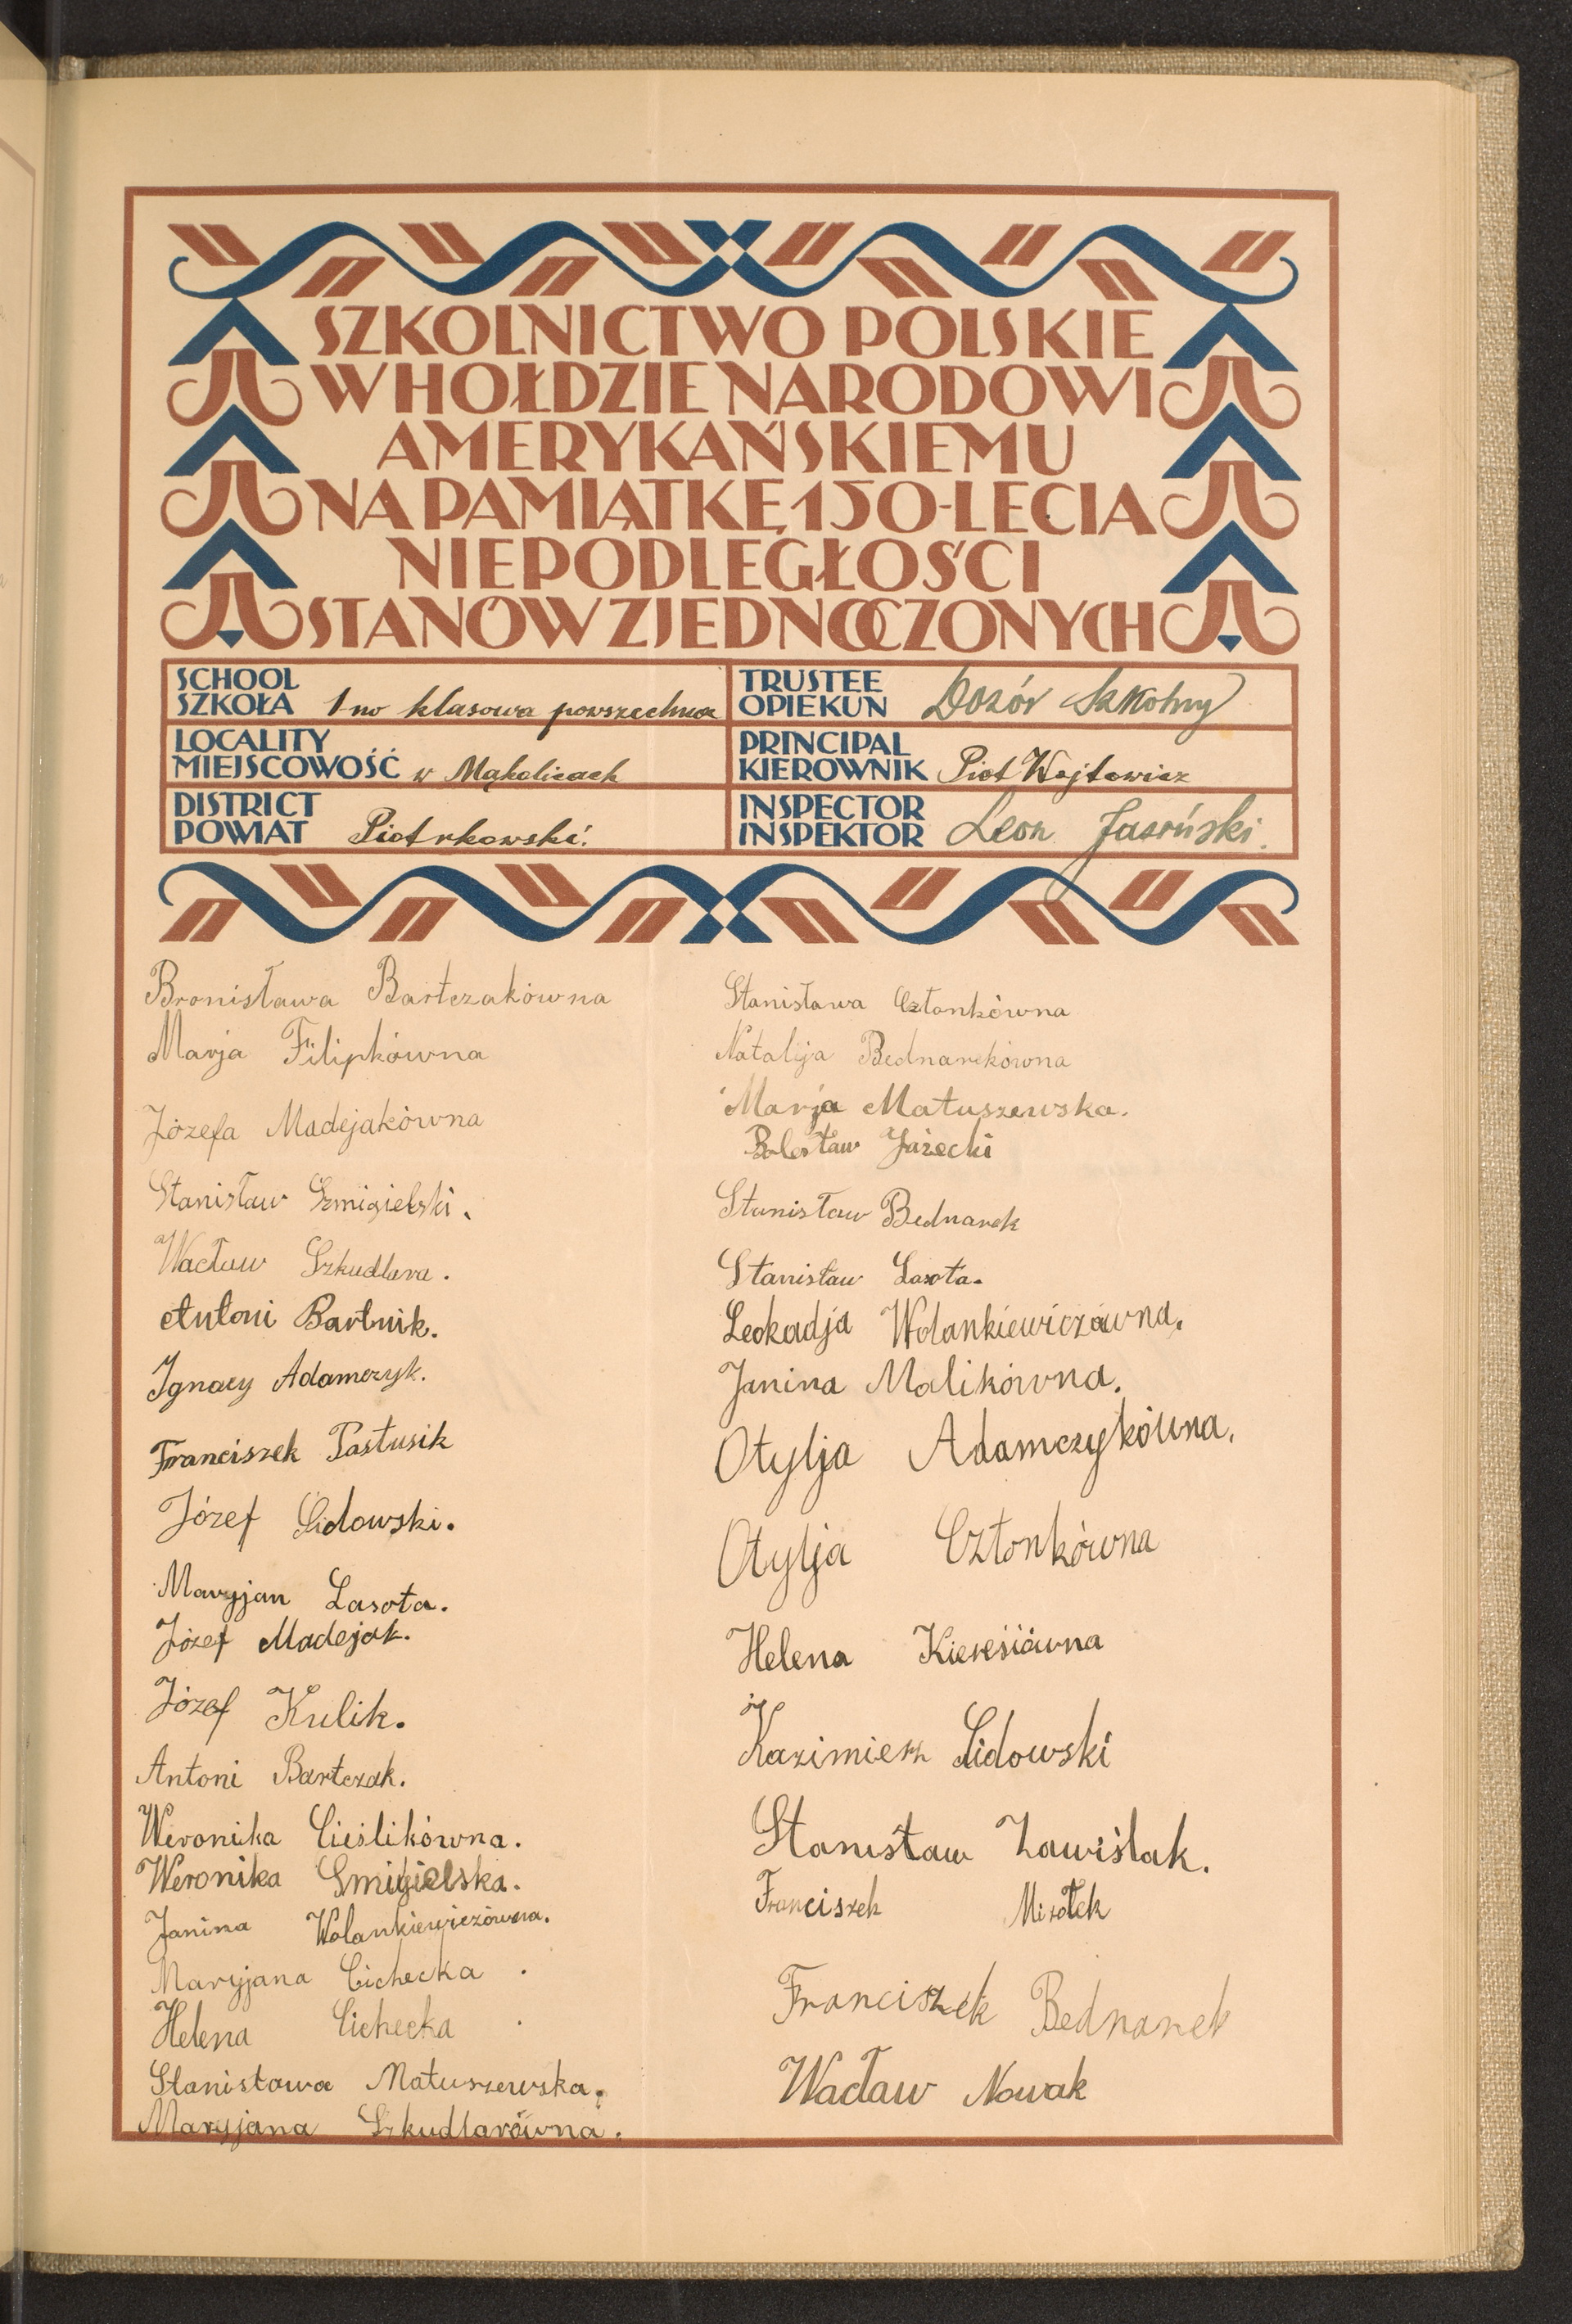 SZKOLNICTWO POLSKIE
W HOŁDZIE NARODOWI
AMERYKAŃSKIEMU
NA PAMIĄTKĘ 150-LECIA
NIEPODLEGŁOŚCI
STANÓW ZJEDNOCZONYCH
SCHOOL
SZKOŁA 1-no klasowa powszechna
LOCALITY
MIEJSCOWOŚĆ w Mąkolicach
DISTRICT
POWIAT Piotrkowski.
TRUSTEE
OPIEKUN Dozór Szkolny
PRINCIPAL
KIEROWNIK Piot Wojtowicz
INSPECTOR
INSPEKTOR Leon Jasoński.
Bronisława Bartczakówna
Marja Filipkówna
Józefa Madejakówna
Stanisław Szmigielski.
Wacław Szkudlara.
Antoni Bartnik.
Ignacy Adamczyk.
Franciszek Pastusik
Józef Lidowski.
Maryjan Lasota.
Józef Madejak.
Józef Kulik.
Antoni Bartczak.
Weronika Cieślikówna.
Weronika Smigielska.
Janina Wolankiewiczówna.
Maryjana Cichecka .
Helena Cichecka .
Stanisława Matuszewska.
Maryjana Szkudlarówna.
Stanisława Członkówna
Natalija Bednarekówna
Marja Matuszewska.
Bolesław Jażecki
Stanisław Bednarek
Stanisław Lasota.
Leokadja Wolankiewiczówna.
Janina Malikówna.
Otylja Adamczykówna.
Otylja Członkówna
Helena Kieresiówna
Kazimierz Lidowski
Stanisław Zawiślak.
Franciszek Mizołek
Franciszek Bednarek
Wacław Nowak